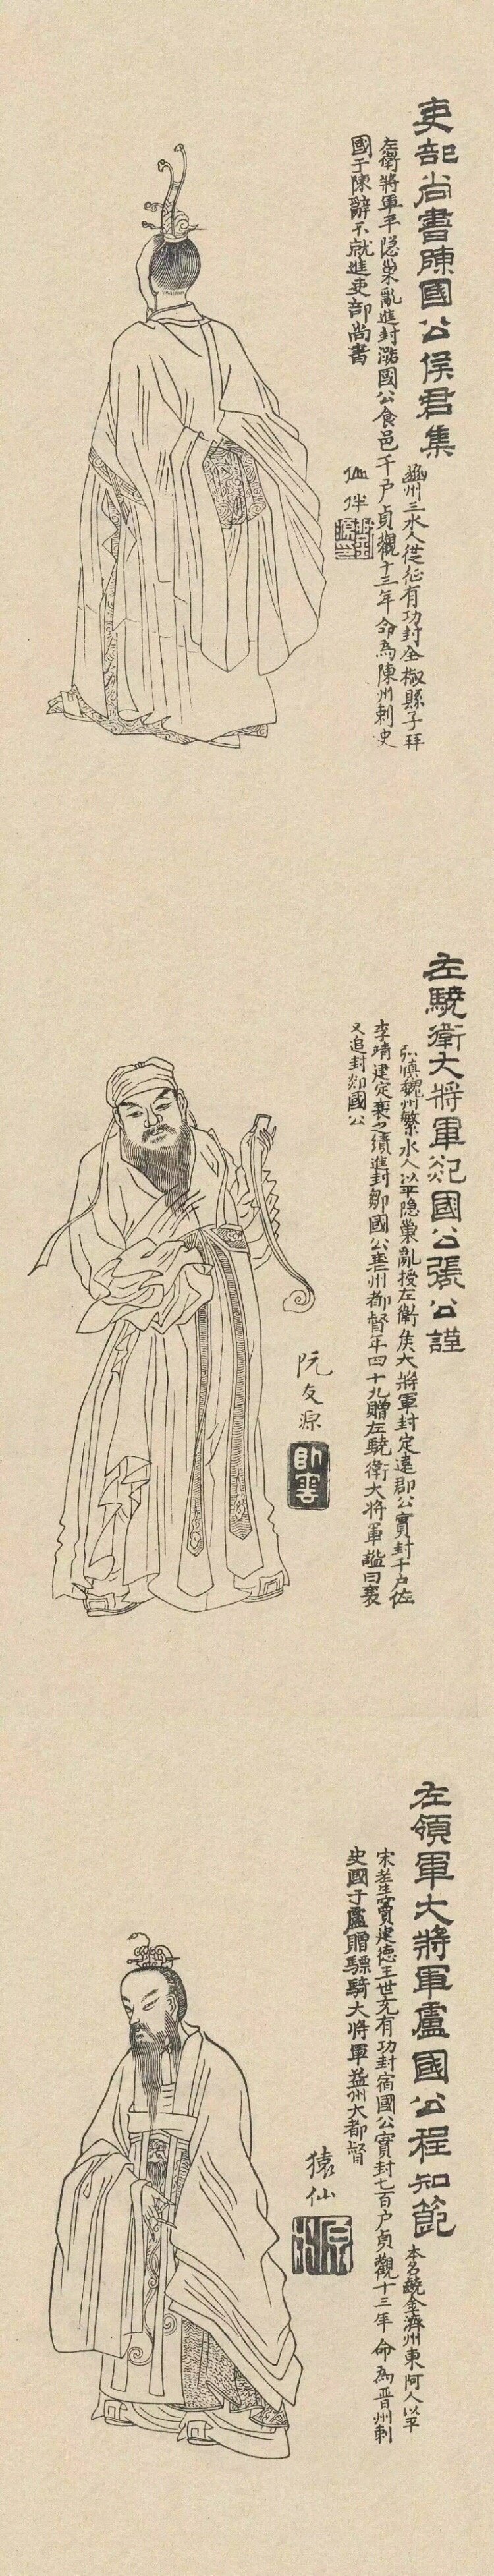 吏部尚書陳國公侯君集
豳州三水人從征有功封全椒縣子拜
左衛將軍平隱巢亂進封潞國公食邑千戶貞觀十三年命為陳州刺史
國于陳辭不就進吏部尚書
仙伴
左驍衛大將軍郯國公張公謹
弘慎魏州繁水人以平隱巢亂授左衛矦大將軍封定遠郡公實封千戶佐
李靖建定襄之績進封鄒國公襄州都督年四十九贈左驍衛大將軍謚曰襄
又追封郯國公
阮友源
臥雲
左領軍大將軍盧國公程知節
本名齩金濟州東阿人以平
宋老生竇建德王世充有功封宿國公實封七百戶貞觀十三年命為晉州刺
史國于盧贈驃騎大將軍益州大都督
猿仙